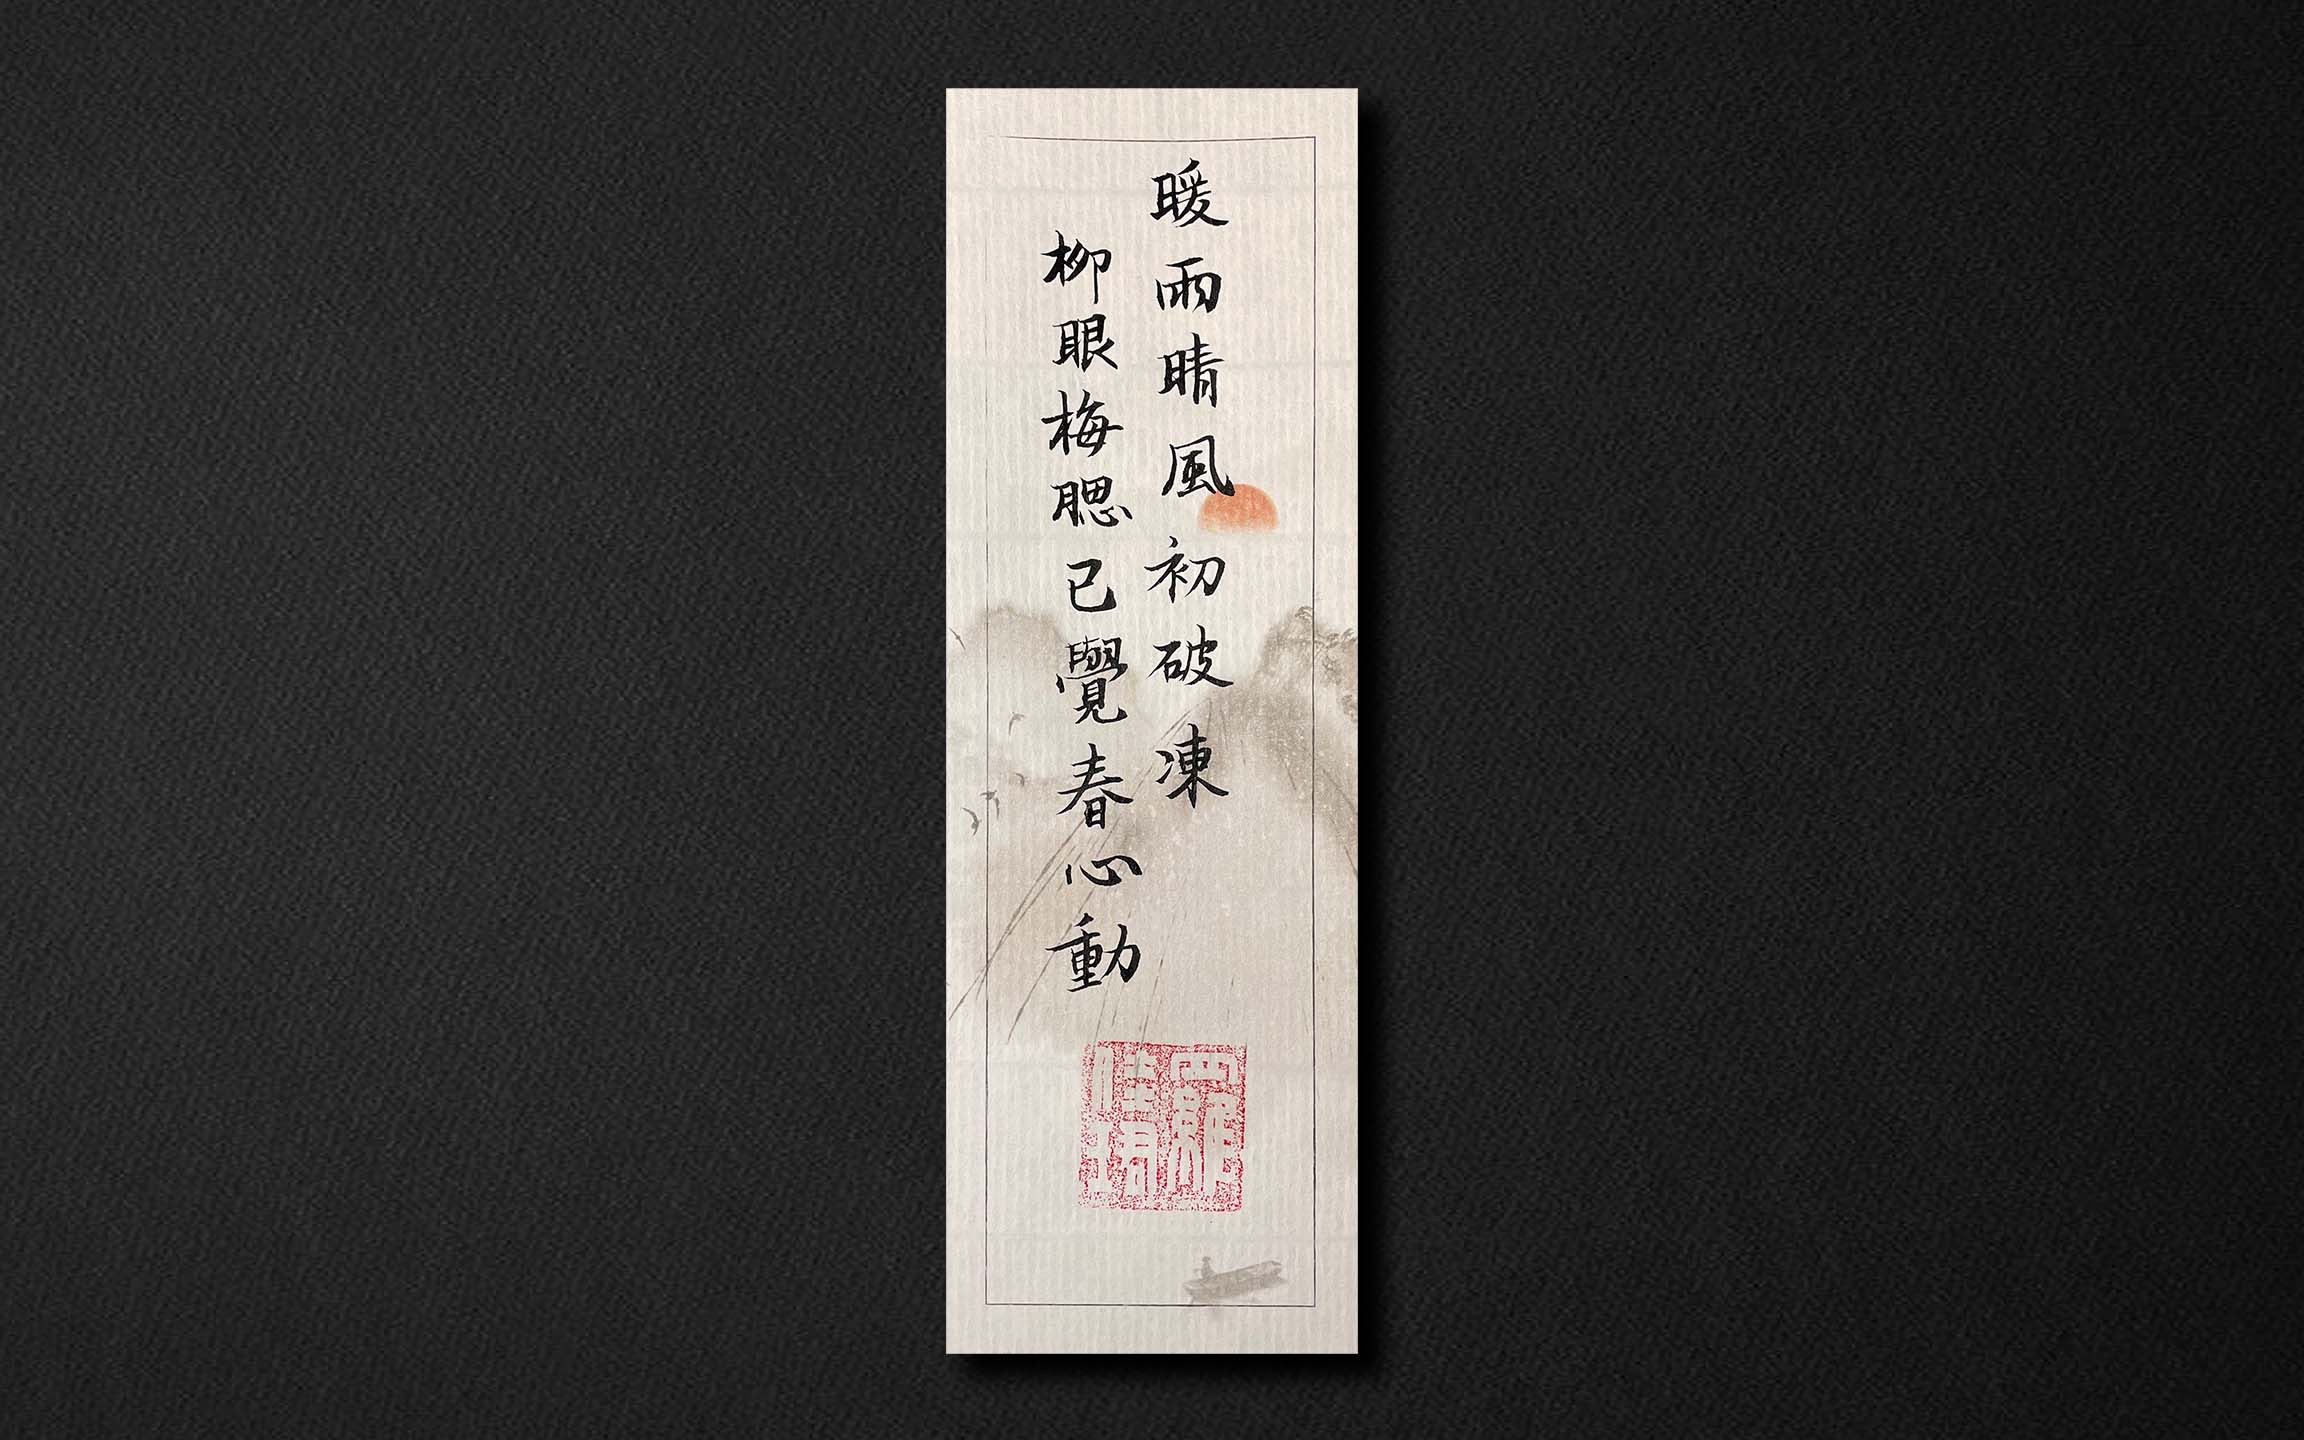 暖雨晴風初破凍
柳眼梅腮已覺春心動